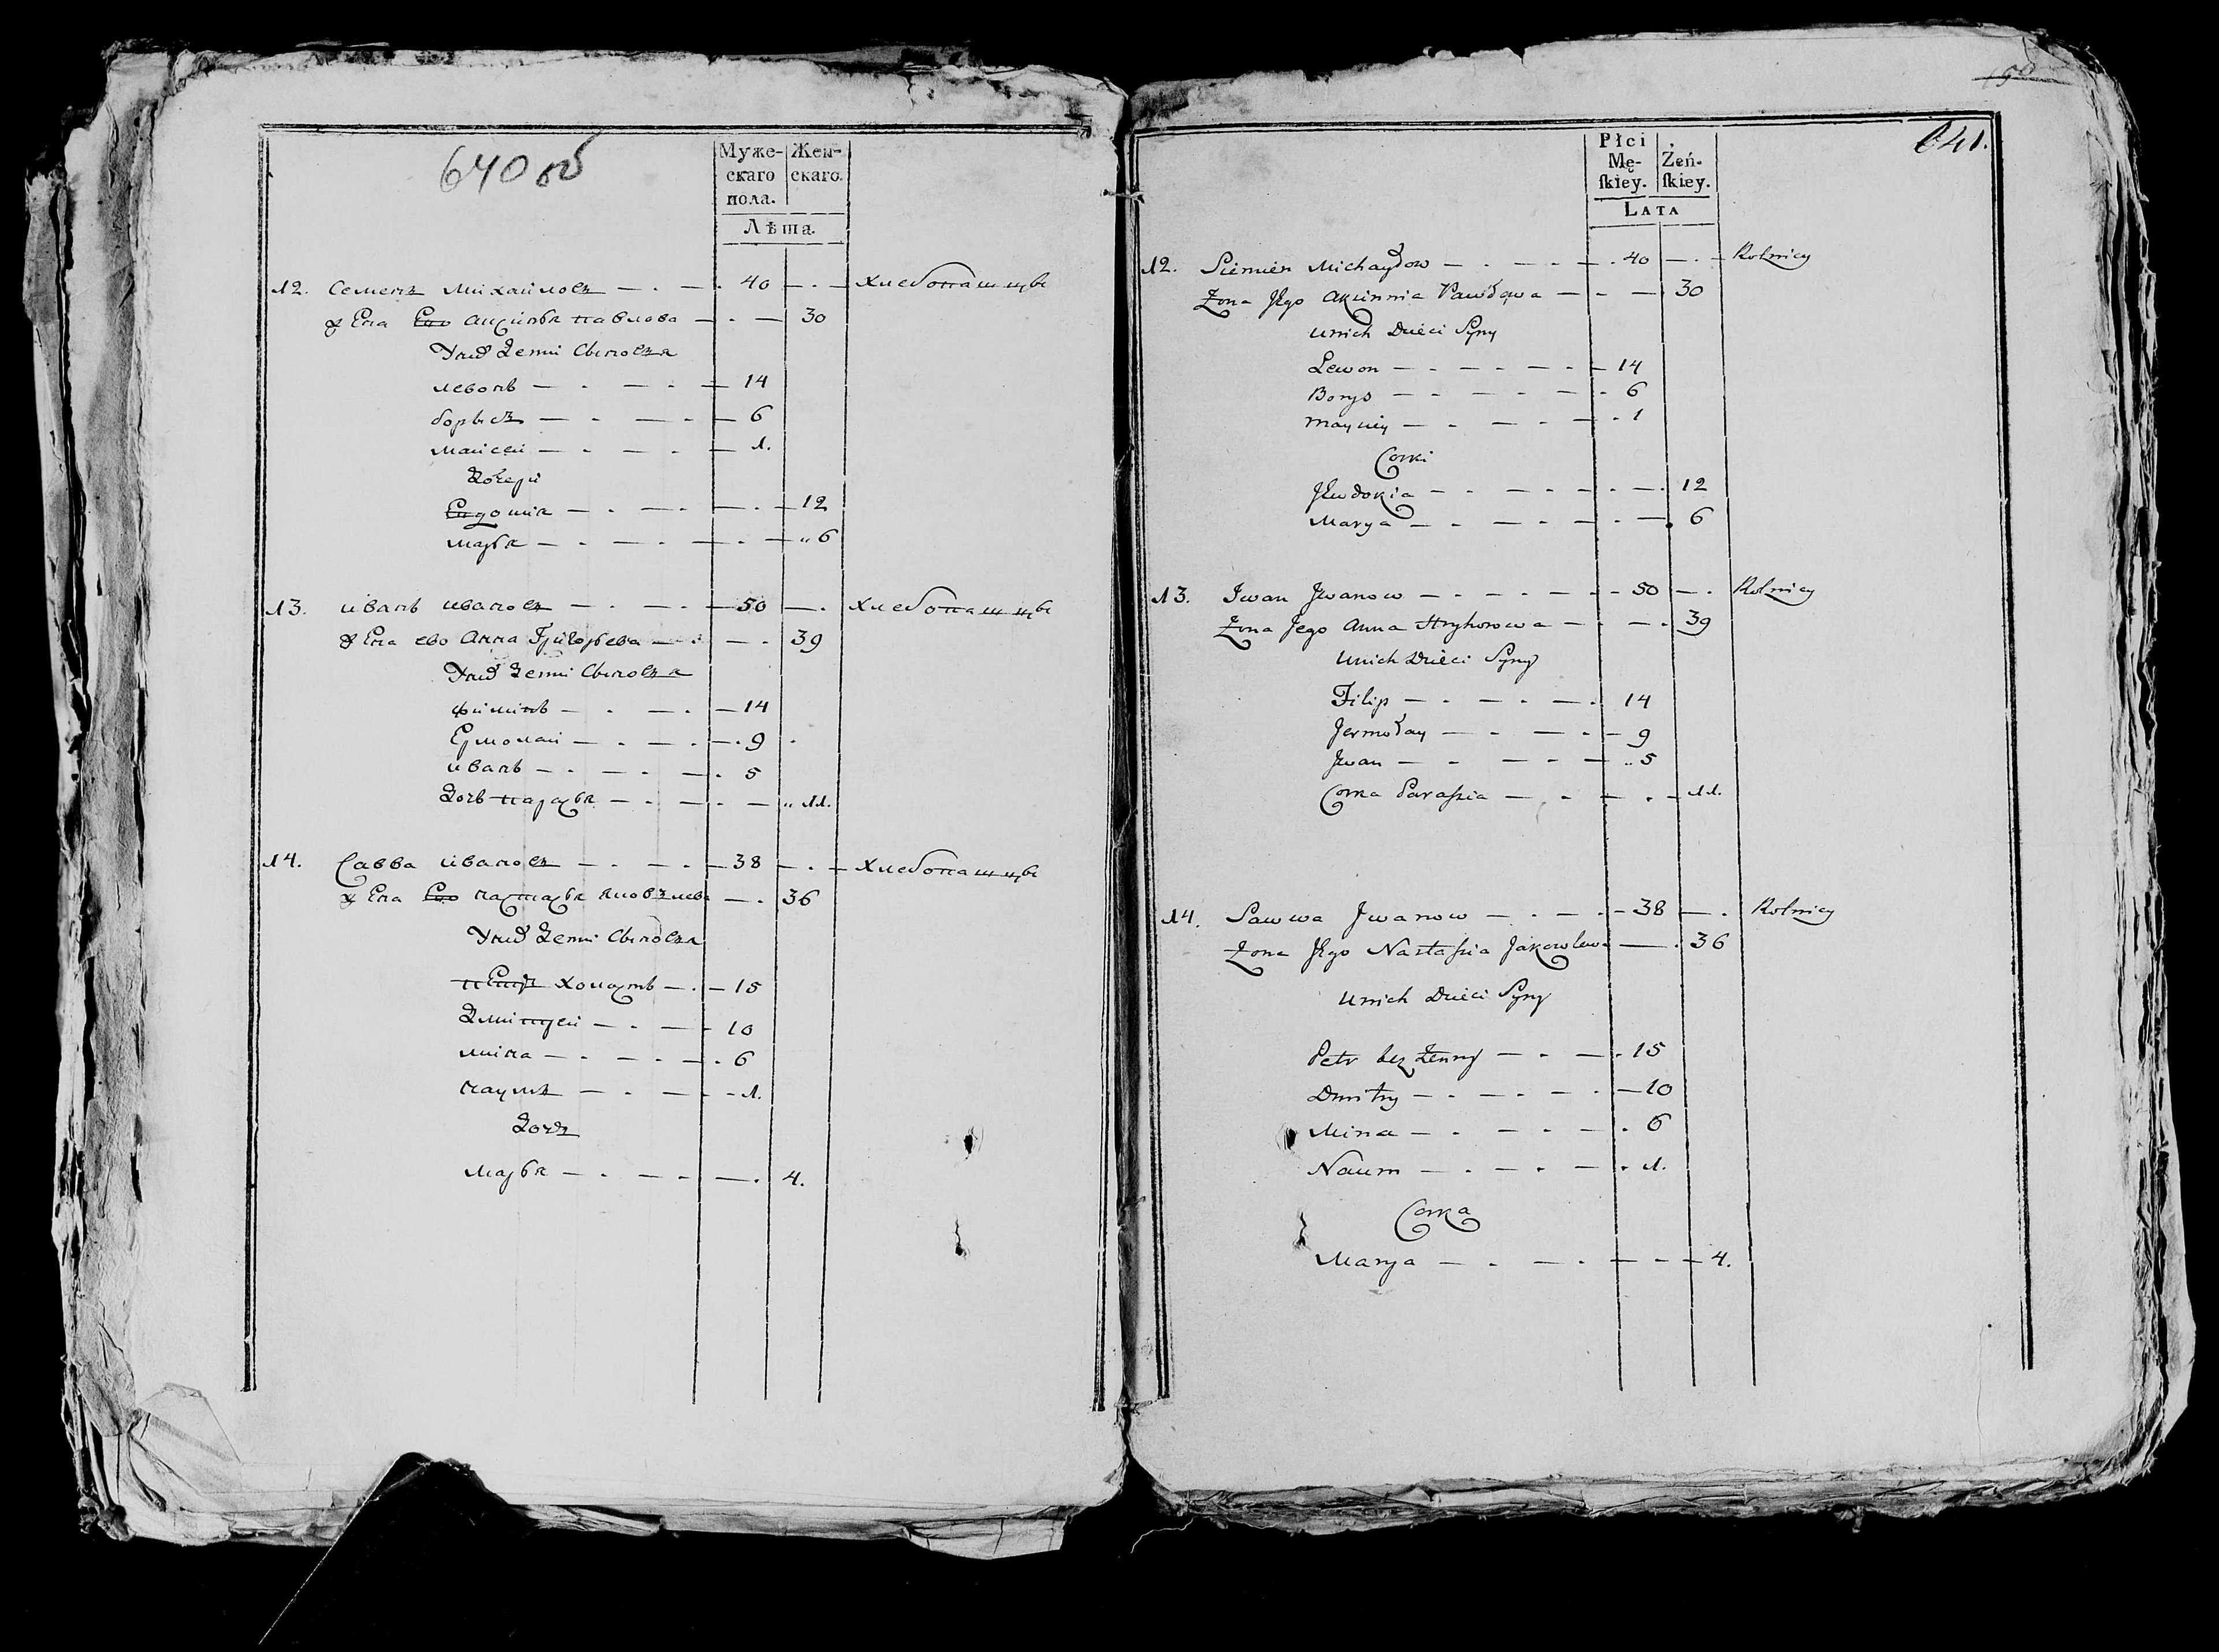 640 об
Муже- Жен-
скаго скаго.
пола.
Лѣта.
12. Семенъ Михайловъ — 40 — хлебопашцы
жена Ево Аксинья павлова — 30
У них дети Сыновья
левонъ — 14
борысъ — 6
майсей — 1.
дочери
Евдокия — 12
марья — 6
13. иванъ ивановъ — 50 — хлебопашцы
жена ево Анна Григорьева — 39
У них дети Сыновья
филипъ — 14
Ермолай — 9
иванъ — 5
дочь парасья — 11.
14. Савва ивановъ — 38 — хлебопашцы
жена Ево настасья яковлева — 36
У них дети Сыновья
пЕтръ холастъ — 15
дмитрей — 10
мина — 6
наумъ — 1.
дочь
марья — 4.
641.
Płci
Mę- Żeń-
ſkiey. ſkiey.
LATA
12. Siemien Michayłow — 40 — Rolnicy
Zona Jego Akсinnia Pawłowa — 30
u nich Dzieci Syny
Lewon — 14
Borys — 6
Maysiey — 1
Corki
Jewdokia — 12
Marya — 6
13. Iwan Jwanow — 50 — Rolnicy
Zona Jego Anna Hryhorowa — 39
u nich Dzieci Syny
Filip — 14
Jermołay — 9
Jwan — 5
Corka Paraſzia — 11.
14. Sawwa Jwanow — 38 — Rolnicy
Zona Jego Nastaſzia Jakowlewa — 36
u nich Dzieci Syny
Petr bez Zenny — 15
Dmitry — 10
Mina — 6
Naum — 1.
Corka
Marya — 4.